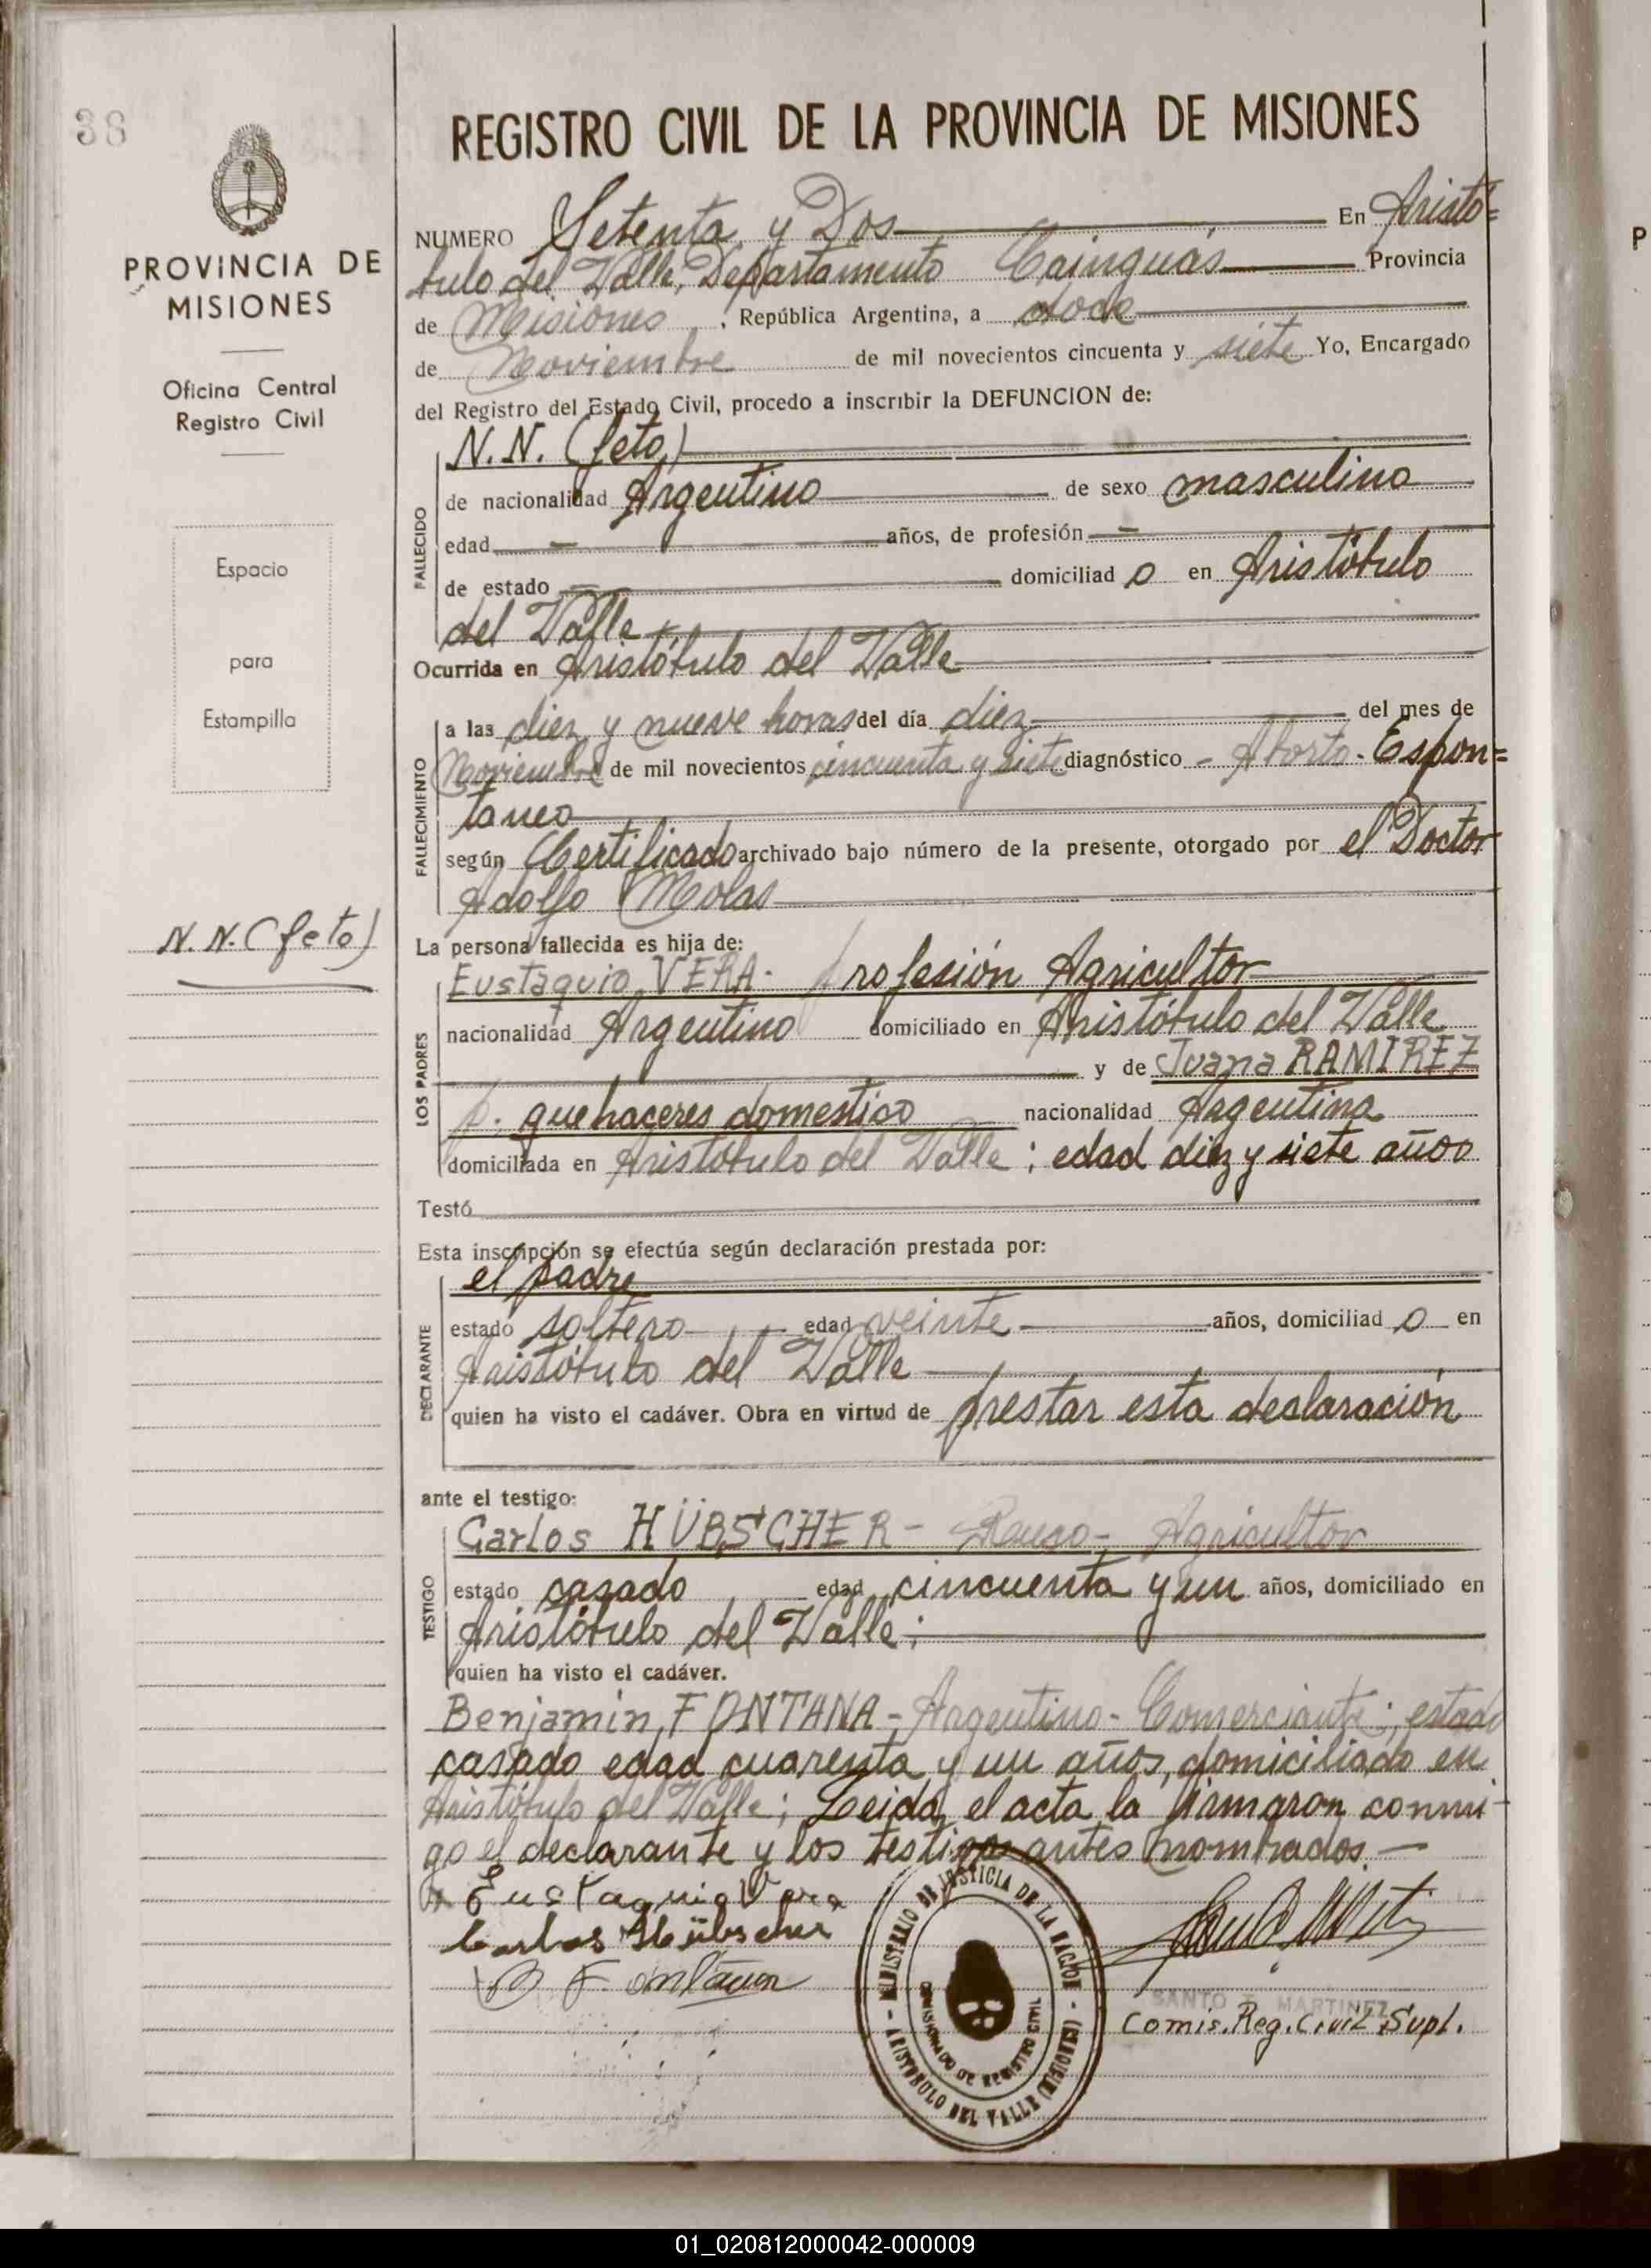 38
PROVINCIA DE
MISIONES
Oficina Central
Registro Civil
Espacio
para
Estampilla
N. N. (feto)
REGISTRO CIVIL DE LA PROVINCIA DE MISIONES
NUMERO Setenta y Dos En Aristó=
tulo del Valle, Departamento Cainguás Provincia
de Misiones, República Argentina, a doce
de Noviembre de mil novecientos cincuenta y siete Yo, Encargado
del Registro del Estado Civil, procedo a inscribir la DEFUNCION de:
N. N. (feto)
de nacionalidad Argentino de sexo masculino
FALLECIDO
edad — años, de profesión —
de estado — domiciliado en Aristótulo
del Valle
Ocurrida en Aristótulo del Valle
a las diez y nueve horas del día diez del mes de
Noviembre de mil novecientos cincuenta y siete diagnóstico - Aborto - Espon=
FALLECIMIENTO
taneo
según Certificado archivado bajo número de la presente, otorgado por el Doctor
Adolfo Molas
La persona fallecida es hija de:
Eustaquio VERA - profesión Agricultor
nacionalidad Argentino domiciliado en Aristótulo del Valle
LOS PADRES
y de Juana RAMIREZ
p. quehaceres domestico nacionalidad Argentina
domiciliada en Aristótulo del Valle; edad diez y siete años
Testó
Esta inscripción se efectúa según declaración prestada por:
el padre
estado soltero edad veinte años, domiciliado en
DECLARANTE
Aristótulo del Valle
quien ha visto el cadáver. Obra en virtud de prestar esta declaración
ante el testigo:
Carlos HÜBSCHER - Ruso - Agricultor
TESTIGO
estado casado edad cincuenta y un años, domiciliado en
Aristótulo del Valle;
quien ha visto el cadáver.
Benjamin FONTANA - Argentino - Comerciante; estado
casado edad cuarenta y un años, domiciliado en
Aristótulo del Valle; Leida el acta la firmaron conmi-
go el declarante y los testigos antes nombrados. —
Eustaquio Vera
Carlos Hübscher
B Fontana
MINISTERIO DE JUSTICIA DE LA NACION
COMISIONADO DE REGISTRO CIVIL
- ARISTOBULO DEL VALLE (MISIONES) -
SANTO T. MARTINEZ
Comis. Reg. Civil Supl.
01_020812000042-000009